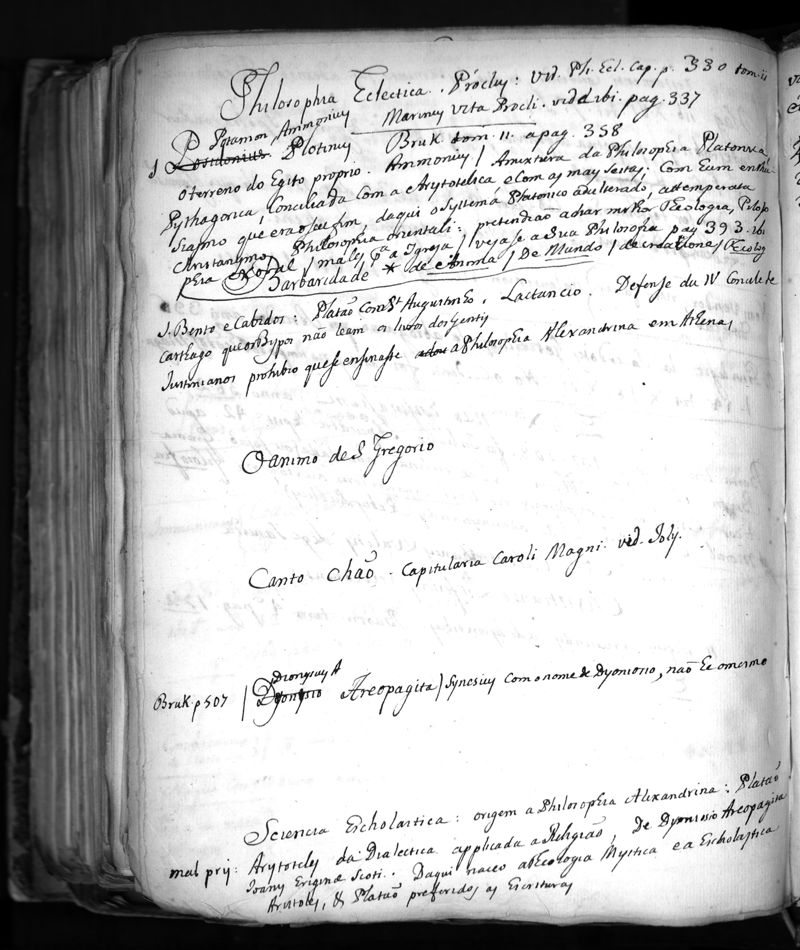 Philosophia Eclectica. Proclus: vid. Ph. Ecl. Cap. p. 330 tom. ii
Marinus vita Procli. vid. ibi. pag. 337
Potamon Ammonius
1 Possidonius Plotinus Bruk. tom. 11. a pag. 358
o terreno do Egito proprio. Ammonius / A mixtura da Philosophia Platonica
Pythagorica, Conciliada Com a Arystotelica e Com as mays seitas; Com Eum enthu-
siasmo que era o seu fim, daqui o Systema Platonico adulterado, attemperata
Christianymo, Philosophia oriental: pretendião achar milhor Theologia, Philoso
phia moral / males pa. a Igreja / veja se a Sua Philosofia pag 393. ibi
Barbaridade * de Anima / De Mundo / de creatione / Theolog
S. Bento e Cabidos: Platão Com St. Augustinho, Lactancio. Defense du IV Concile de
Carthago que os Bypos não leam os livros dos Gentiys
Justinianos prohibio que se ensinasse a Philosophia Alexandrina em Athenas
O animo de S Gregorio
Canto Chaõ. Capitularia Caroli Magni. vid. Joly.
Dionysius A
Bruk. p 507 / Dyonysio Areopagita / Synesius Com o nome de Dyonisio, não he o mesmo
Sciencia Escholastica: origem a Philosophia Alexandrina: Platão
mal prij: Arystoteles da Dialectica applicada a Religião, De Dyonisio Areopagita
Joanis Erigenæ Scoti. Daqui naceo a Theologia Mystica e a Escholastica
Aristoles, & Platão preferidos as Escrituras